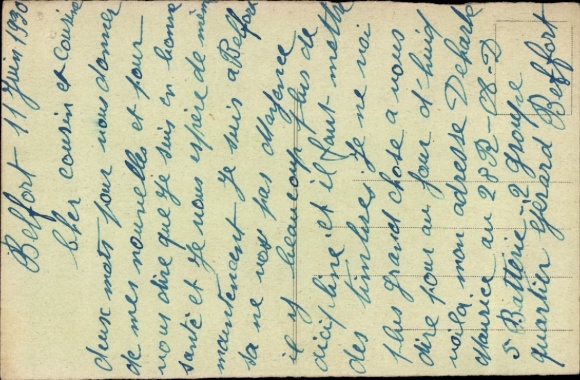 Belfort - 11 Juin 1930
Cher cousin et cousine
deux mots pour vous donner
de mes nouvelles et pour
vous dire que je suis en bonne
santé et je vous espère de mêm
maintenant je suis a Belfor
sa ne vax pas Mayence
il y beaucoup plus de
dicipline et il faut mettre
des timbres. Je ne voi
plus grand chose a vous
dire pour au jour d'huis
voila mon adresse
Maurice au 28 R-
5 Batterie - 2 groupe
quartier Gérard Belfort